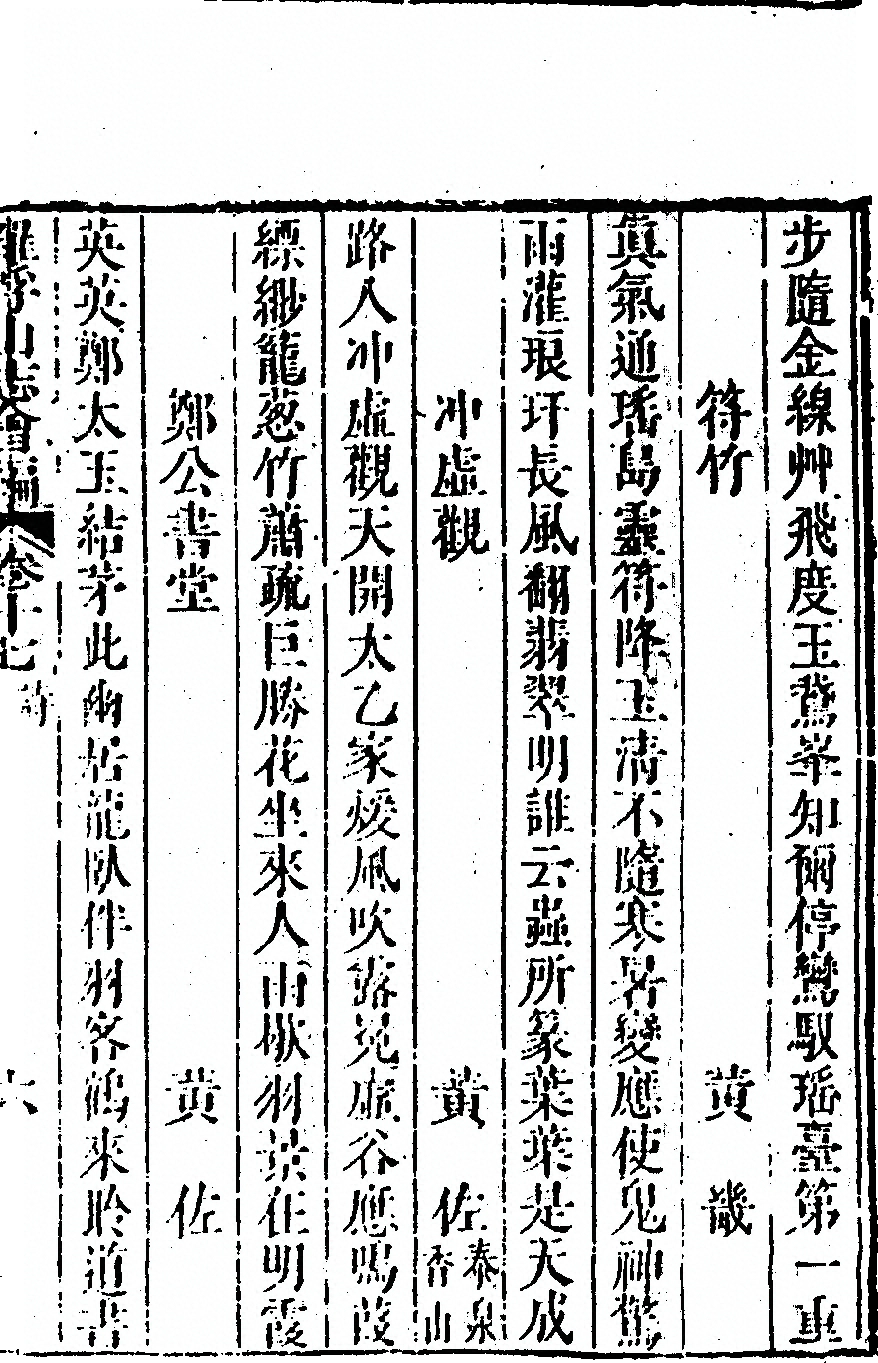 步隨金線艸飛度玉鵞峯知爾停鸞馭瑶臺第一重
符竹 黄 畿
眞氣通瑶島靈符降玉清不隨寒暑變應使鬼神驚
雨灌琅玕長風翻翡翠明誰云蟲所篆葉葉是天成
冲虚觀 黄 佐 泰泉 香山
路入冲虚觀天開太乙家煖風吹露冕虚谷應鳴葭
縹緲籠葱竹蕭疏巨勝花坐來人雨散羽景在明霞
鄭公書堂 黄 佐
英英鄭太玉結茅此幽居龍臥伴羽客鶴來聆道書
羅浮山志會編 卷十七 詩 六